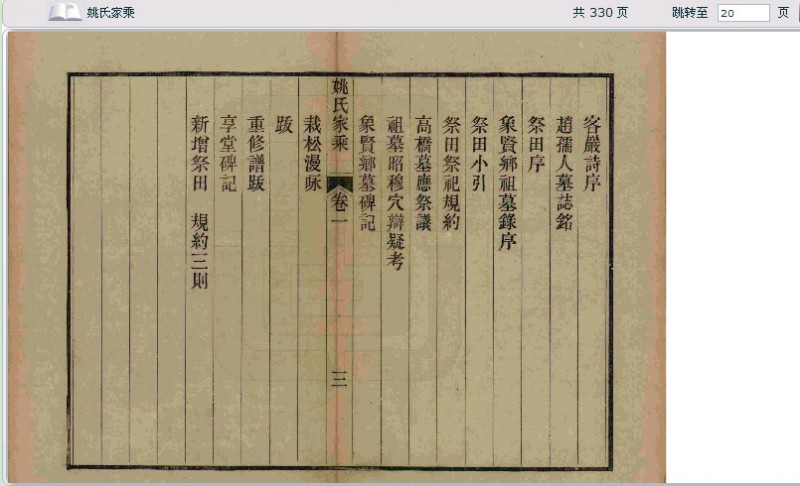 姚氏家乘
共 330 页
跳转至 20 页
客嚴詩序
趙孺人墓誌銘
祭田序
象賢鄉祖墓錄序
祭田小引
祭田祭祀規約
高橋墓應祭議
祖墓昭穆穴辯疑考
象賢鄉墓碑記
姚氏家乘 卷一 三
栽松漫咏
跋
重修譜跋
享堂碑記
新增祭田 規約三則